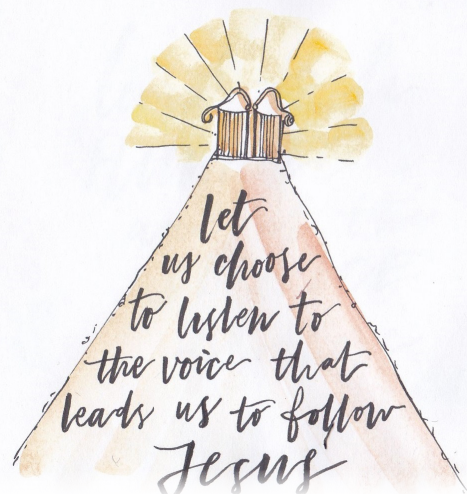 let
us choose
to listen to
the voice that
leads us to follow
Jesus